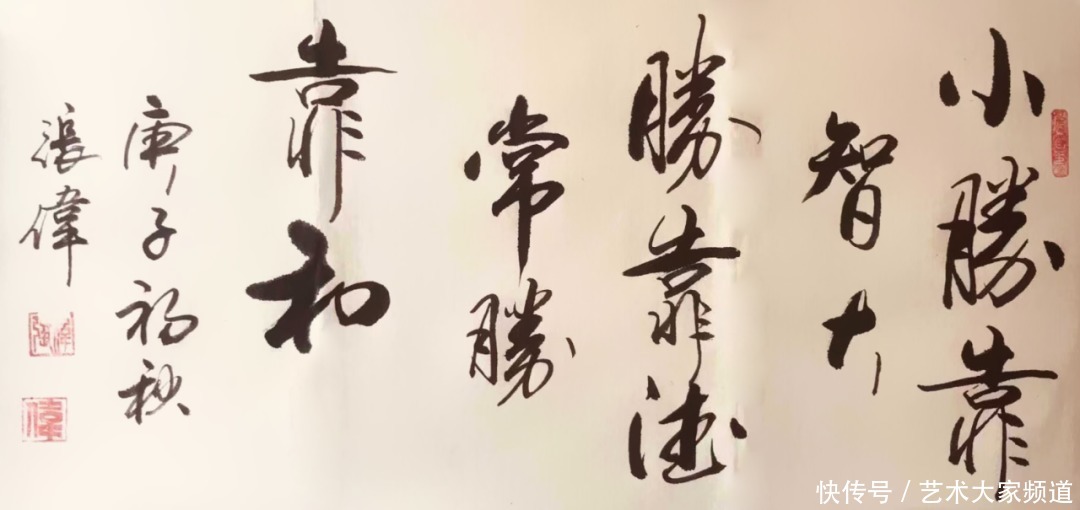 小勝靠
智大
勝靠德
常勝
靠和
庚子初秋
張偉
快传号 / 艺术大家频道